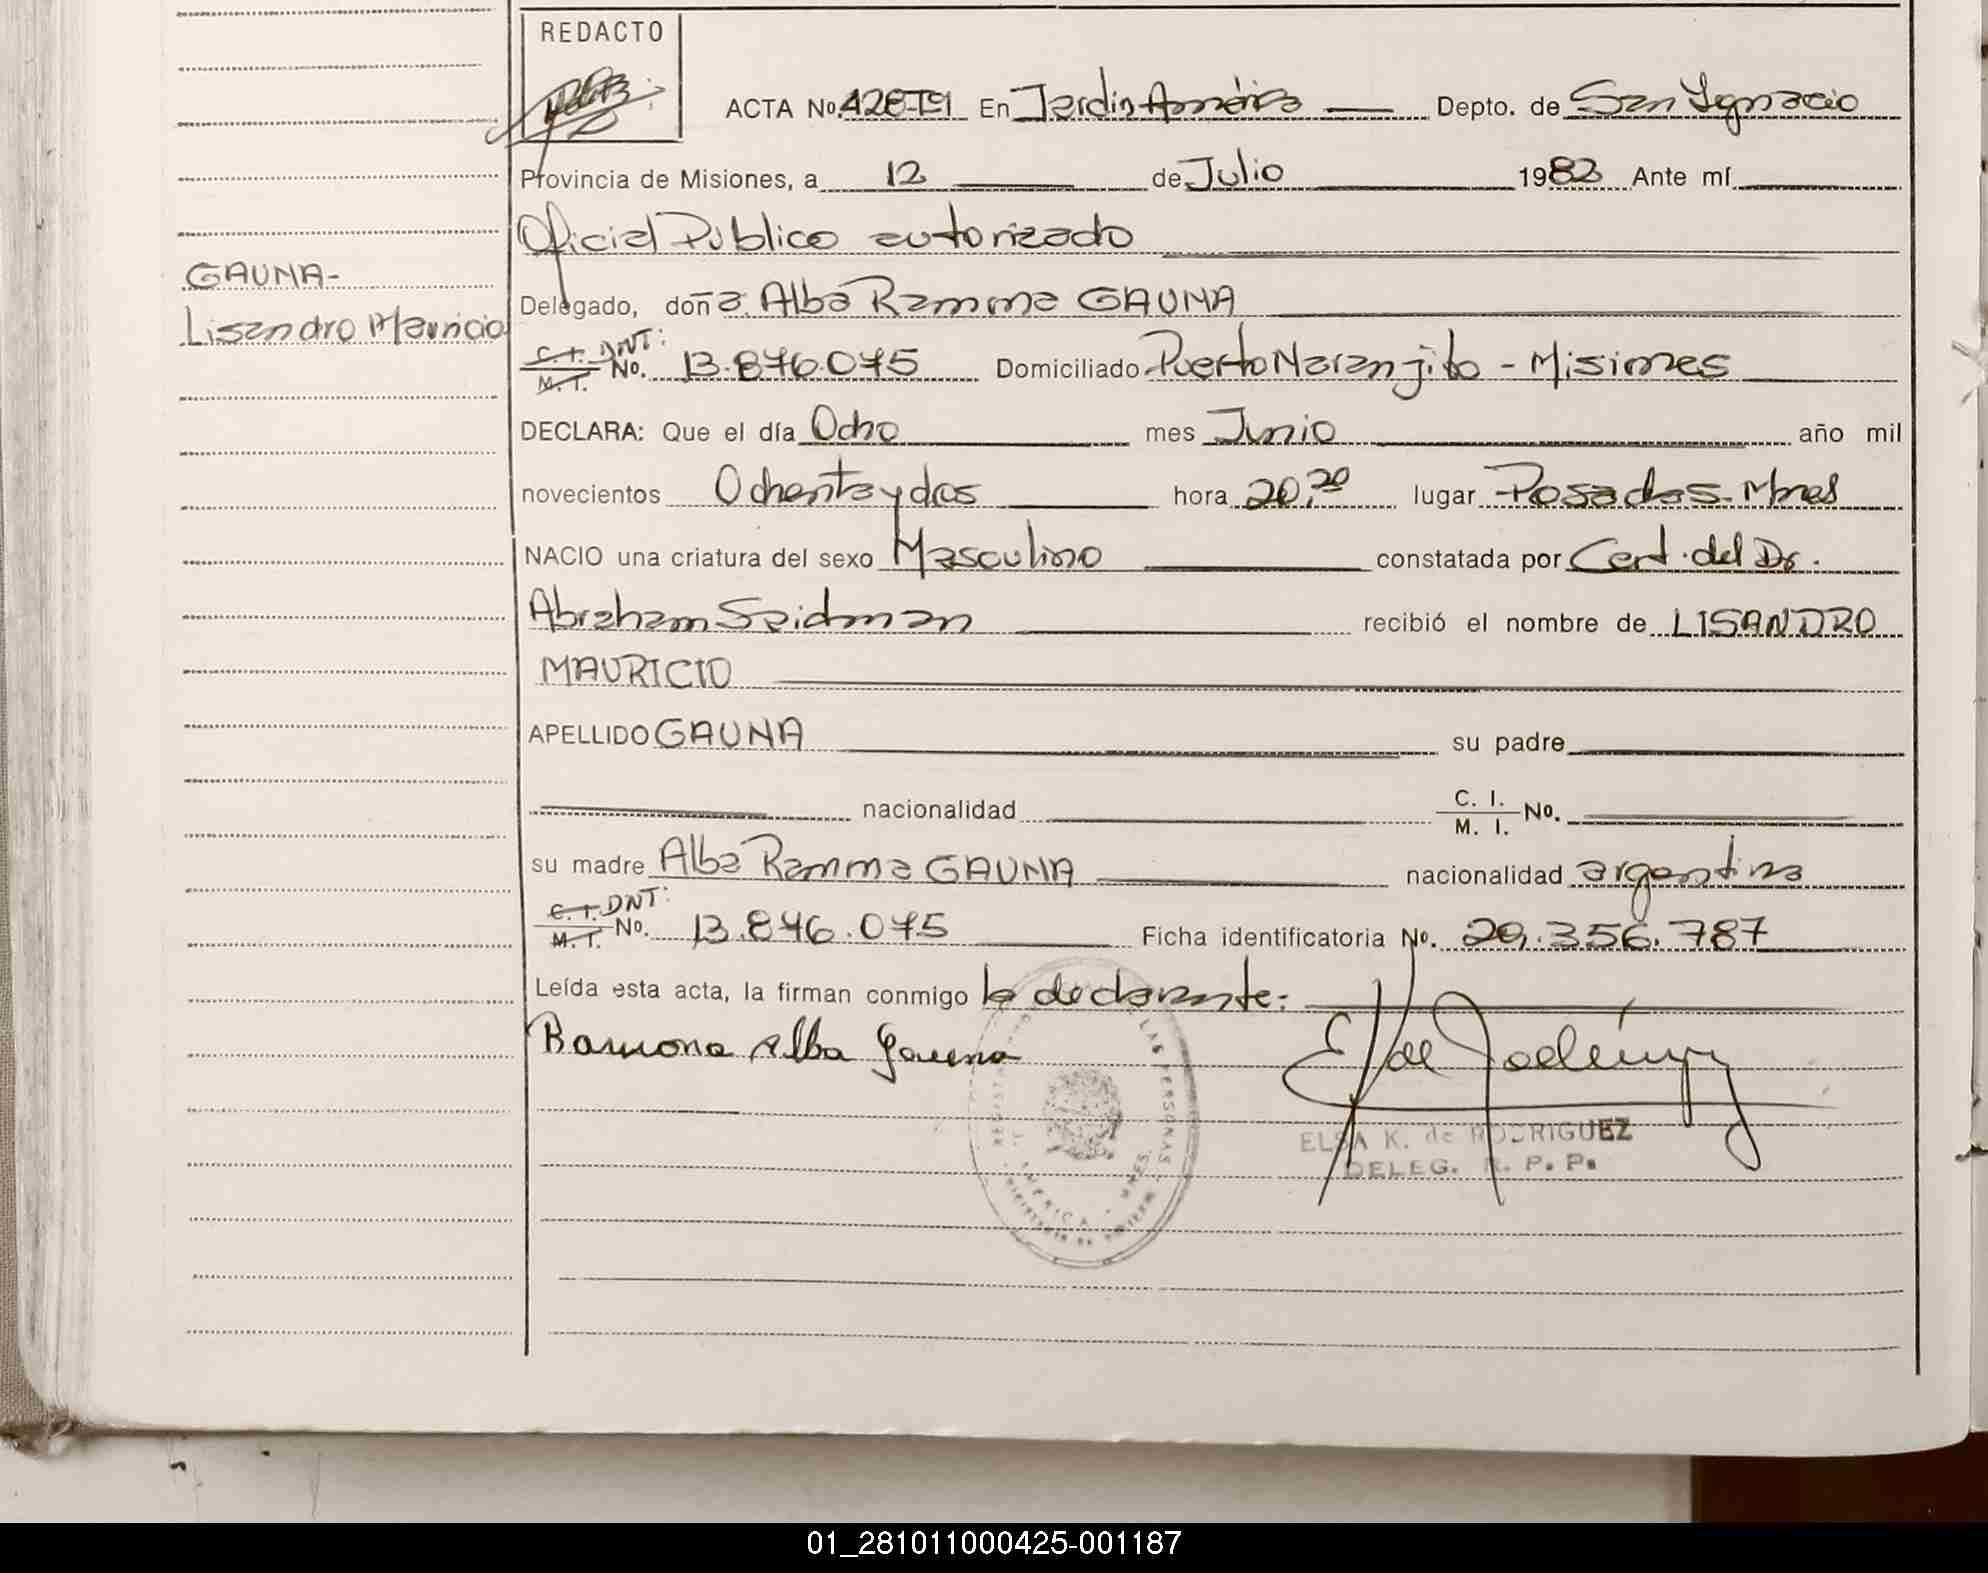 REDACTO
ACTA No. 428-T9 En Jardin América Depto. de San Ignacio
Provincia de Misiones, a 12 de Julio 1982 Ante mí
Oficial Publico autorizado
GAUNA-
Delegado, doña Alba Ramona GAUNA
Lisandro Mauricio
C. I. DNI:
M. I. No. 13.876.075 Domiciliado Puerto Naranjito - Misiones
DECLARA: Que el día Ocho mes Junio año mil
novecientos Ochenta y dos hora 20,20 lugar Posadas-Mnes
NACIO una criatura del sexo Masculino constatada por Cert. del Dr.
Abraham Seidman recibió el nombre de LISANDRO
MAURICIO
APELLIDO GAUNA su padre
nacionalidad C. I. M. I. No.
su madre Alba Ramona GAUNA nacionalidad argentina
C. I. DNI:
M. I. No. 13.876.075 Ficha identificatoria No. 29.356.787
Leída esta acta, la firman conmigo la declarante:
Ramona Alba Gauna
ELSA K. de RODRIGUEZ
DELEG. R. P. P.
01_281011000425-001187